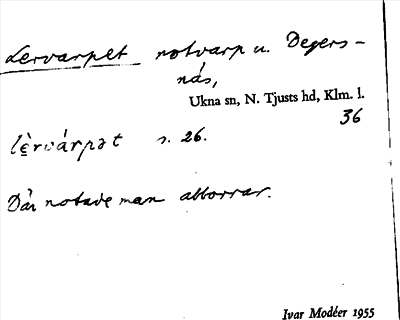 Lervarpet notvarp u. Degers-
näs,
Ukna sn, N. Tjusts hd, Klm. l.
36
lèrvárpət s. 26.
Där notade man abborrar.
Ivar Modéer 1955